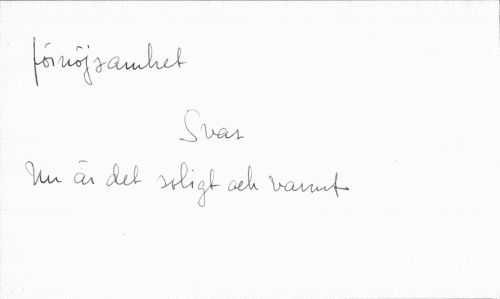 förnöjsamhet
Svar
Nu är det soligt och varmt.